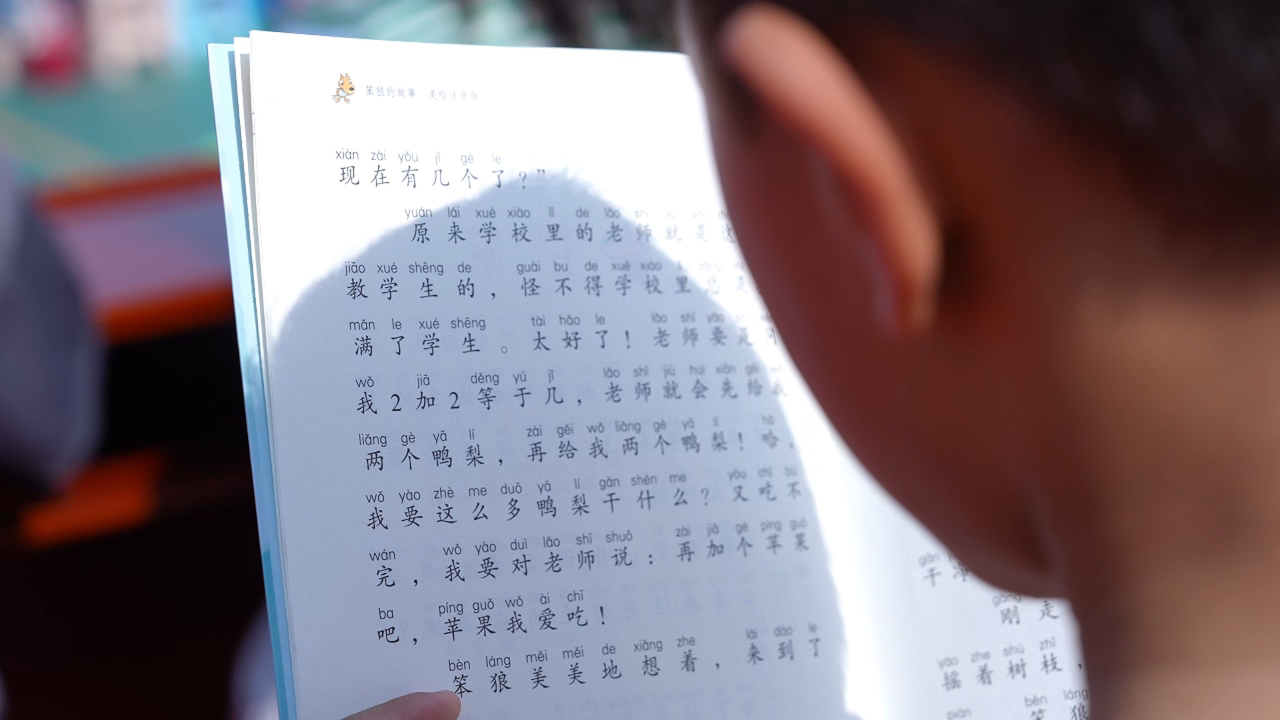 笨狼的故事 美绘注音版
xiàn zài yǒu jǐ gè le
现在有几个了？”
yuán lái xué xiào lǐ de lǎo shī jiù shì
原来学校里的老师就是这
jiāo xué shēng de guài bu de xué xiào lǐ zǒng
教学生的，怪不得学校里总是
mǎn le xué shēng tài hǎo le lǎo shī yào
满了学生。太好了！老师要是
wǒ jiā děng yú jǐ lǎo shī jiù huì xiān gěi
我2加2等于几，老师就会先给我
liǎng gè yā lí zài gěi wǒ liǎng gè yā lí hā
两个鸭梨，再给我两个鸭梨！哈，
wǒ yào zhè me duō yā lí gàn shén me yòu chī bù
我要这么多鸭梨干什么？又吃不
wán wǒ yào duì lǎo shī shuō zài jiā gè píng guǒ
完，我要对老师说：再加个苹果
ba píng guǒ wǒ ài chī
吧，苹果我爱吃！
bèn láng měi měi de xiǎng zhe lái dào le
笨狼美美地想着，来到了
gān
干净
gāng
刚走
yáo zhe shù zhī
摇着树枝，
bèn láng
笨狼
piàn